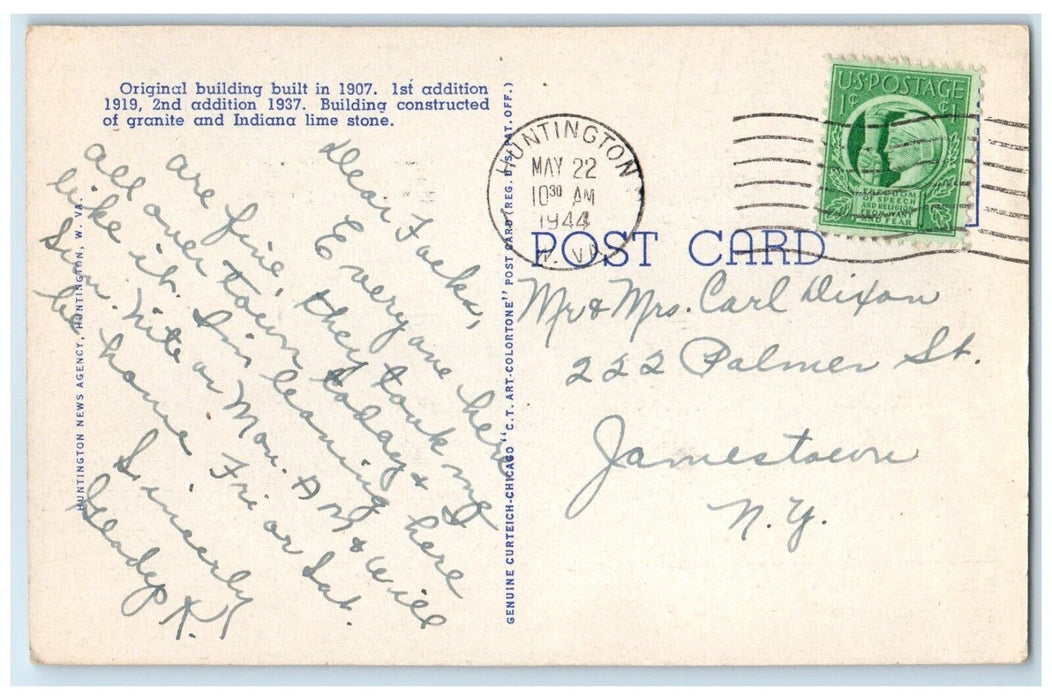 Original building built in 1907. 1st addition
1919, 2nd addition 1937. Building constructed
of granite and Indiana lime stone.
Dear Folks,
Everyone here
are fine, they took me
all over town today &
like it. I'm leaving here
Sun. Nite or Mon. AM & will
be home Fri or Sat.
Sincerely
Gladys K.
HUNTINGTON NEWS AGENCY, HUNTINGTON, W. VA.
GENUINE CURTEICH-CHICAGO "C.T. ART-COLORTONE" POST CARD (REG. U.S. PAT. OFF.)
HUNTINGTON
MAY 22
10 30 AM
1944
W. VA.
U.S. POSTAGE
1¢ ¢1
FREEDOM
OF SPEECH
AND RELIGION
FROM WANT
AND FEAR
POST CARD
Mr & Mrs. Carl Dixon
222 Palmer St.
Jamestown
N.Y.